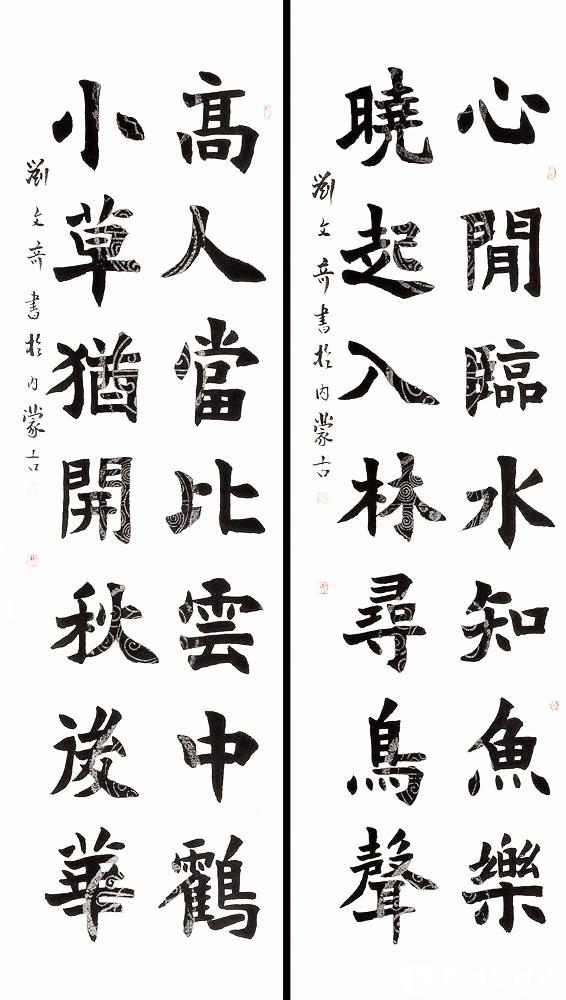 心閒臨水知魚樂
曉起入林尋鳥聲
劉文奇書於内蒙古
高人當比雲中鸖
小草猶開秋後華
劉文奇書於内蒙古